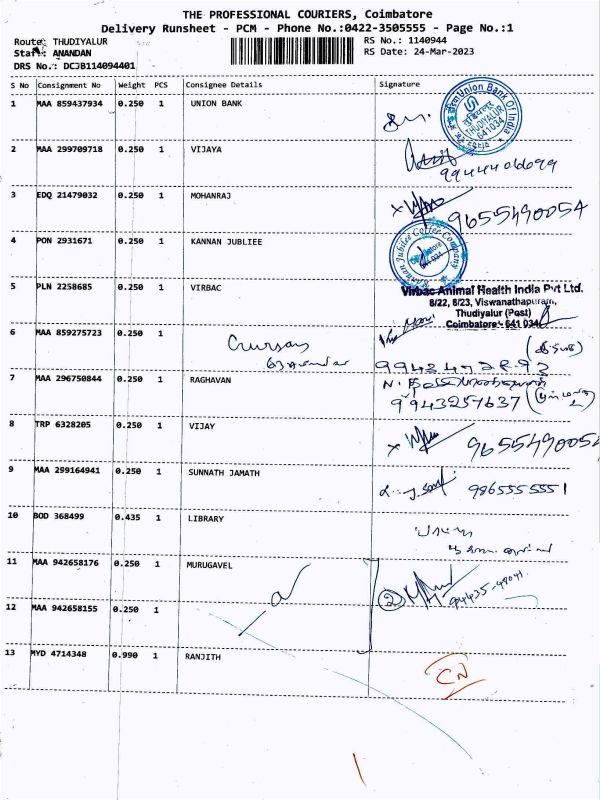 THE PROFESSIONAL COURIERS, Coimbatore
Delivery Runsheet - PCM - Phone No.:0422-3505555 - Page No.:1
Route: THUDIYALUR
RS No.: 1140944
Staff: ANANDAN
RS Date: 24-Mar-2023
DRS No.: DCJB114094401
S No Consignment No Weight PCS Consignee Details Signature
1 MAA 859437934 0.250 1 UNION BANK
Union Bank Of India
THUDIYALUR
641034
2 MAA 299709718 0.250 1 VIJAYA
9944406699
3 EDQ 21479032 0.250 1 MOHANRAJ
9655490054
4 PON 2931671 0.250 1 KANNAN JUBLIEE
Kannan Jubilee Coffee Company
5 PLN 2258685 0.250 1 VIRBAC
Virbac Animal Health India Pvt Ltd.
8/22, 8/23, Viswanathapuram,
Thudiyalur (Post)
Coimbatore - 641 034
6 MAA 859275723 0.250 1
7 MAA 296750844 0.250 1 RAGHAVAN
9943257637
8 TRP 6328205 0.250 1 VIJAY
9655490054
9 MAA 299164941 0.250 1 SUNNATH JAMATH
9865555551
10 BOD 368499 0.435 1 LIBRARY
11 MAA 942658176 0.250 1 MURUGAVEL
2
12 MAA 942658155 0.250 1
13 MYD 4714348 0.990 1 RANJITH
CN